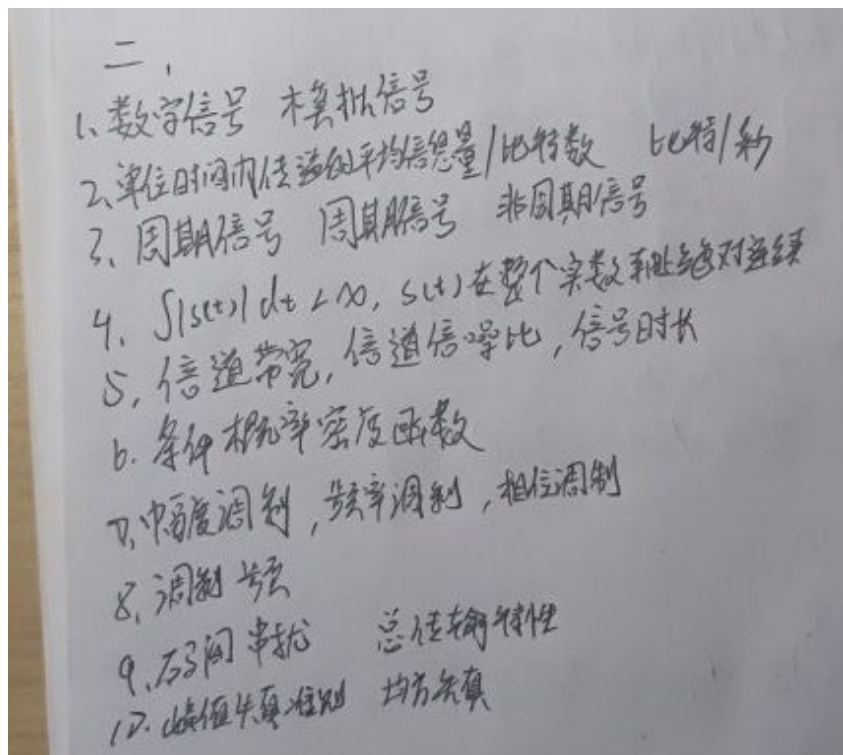 二、
1、数字信号 模拟信号
2、单位时间内传送的平均信息量/比特数 比特/秒
3、周期信号 周期信号 非周期信号
4. ∫|s(t)|dt<∞, s(t)在整个实数轴绝对连续
5, 信道带宽, 信道信噪比, 信号时长
6. 条件概率密度函数
7, 幅度调制, 频率调制, 相位调制
8, 调制 频
9, 码间串扰 总传输特性
10. 峰值失真准则 均方失真